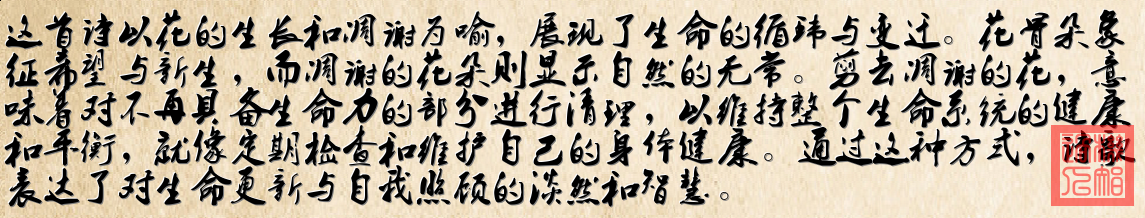 这首诗以花的生长和凋谢为喻，展现了生命的循环与变迁。花骨朵象
征希望与新生，而凋谢的花朵则显示自然的无常。剪去凋谢的花，意
味着对不再具备生命力的部分进行清理，以维持整个生命系统的健康
和平衡，就像定期检查和维护自己的身体健康。通过这种方式，诗歌
表达了对生命更新与自我照顾的淡然和智慧。